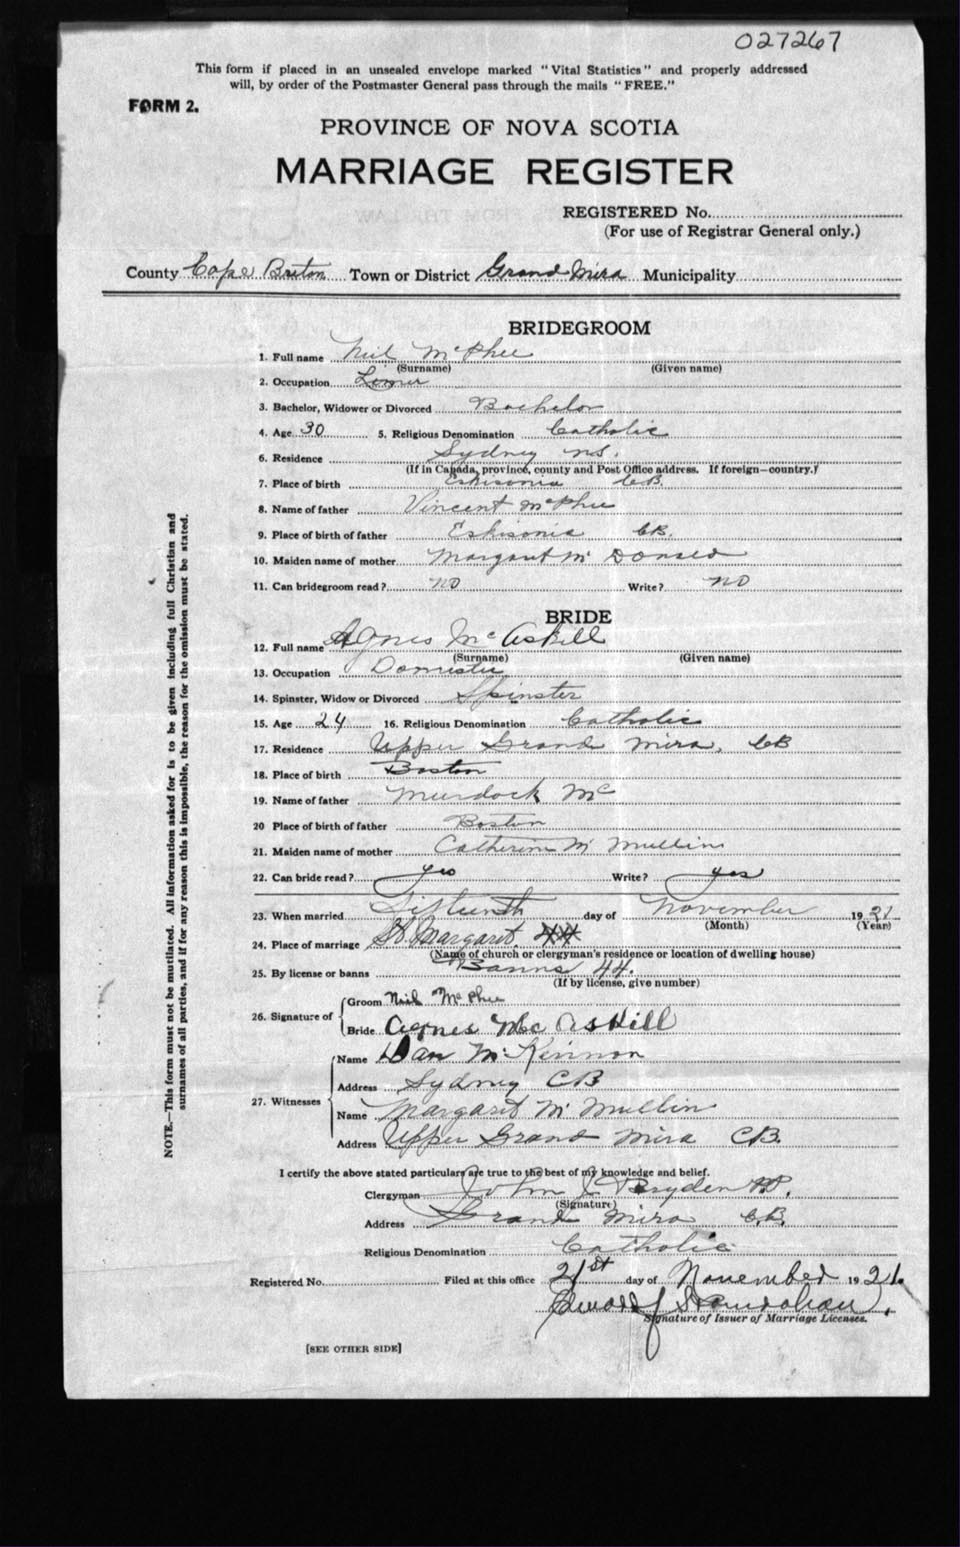 027267
This form if placed in an unsealed envelope marked "Vital Statistics" and properly addressed
will, by order of the Postmaster General pass through the mails "FREE."
FORM 2.
PROVINCE OF NOVA SCOTIA
MARRIAGE REGISTER
REGISTERED No.
(For use of Registrar General only.)
County Cape Breton Town or District Grand Mira Municipality
BRIDEGROOM
1. Full name Neil McPhee
(Surname) (Given name)
2. Occupation
3. Bachelor, Widower or Divorced Bachelor
4. Age 30 5. Religious Denomination Catholic
6. Residence Sydney NS.
(If in Canada, province, county and Post Office address. If foreign—country.)
7. Place of birth Eskisonia CB.
8. Name of father Vincent McPhee
9. Place of birth of father Eskisonia CB.
10. Maiden name of mother Margaret Mc Donald
11. Can bridegroom read? no Write? no
BRIDE
12. Full name Agnes Mc Askill
(Surname) (Given name)
13. Occupation Domestic
14. Spinster, Widow or Divorced Spinster
15. Age 24 16. Religious Denomination Catholic
17. Residence Upper Grand Mira, CB
18. Place of birth Boston
19. Name of father Murdock Mc
20 Place of birth of father Boston
21. Maiden name of mother Catherine Mc Mullin
22. Can bride read? yes Write? yes
23. When married fifteenth day of November 1921
(Month) (Year)
24. Place of marriage St. Margaret
(Name of church or clergyman's residence or location of dwelling house)
25. By license or banns Banns 44.
(If by license, give number)
26. Signature of Groom Neil McPhee
Bride Agnes Mc Askill
27. Witnesses Name Dan McKinnon
Address Sydney CB
Name Margaret Mc Mullin
Address Upper Grand Mira CB.
I certify the above stated particulars are true to the best of my knowledge and belief.
Clergyman John J Bryden PP.
(Signature)
Address Grand Mira C.B.
Religious Denomination Catholic
Registered No. Filed at this office 21st day of November 1921.
Signature of Issuer of Marriage Licenses.
[SEE OTHER SIDE]
NOTE.—This form must not be mutilated. All information asked for is to be given including full Christian and
surnames of all parties, and if for any reason this is impossible, the reason for the omission must be stated.